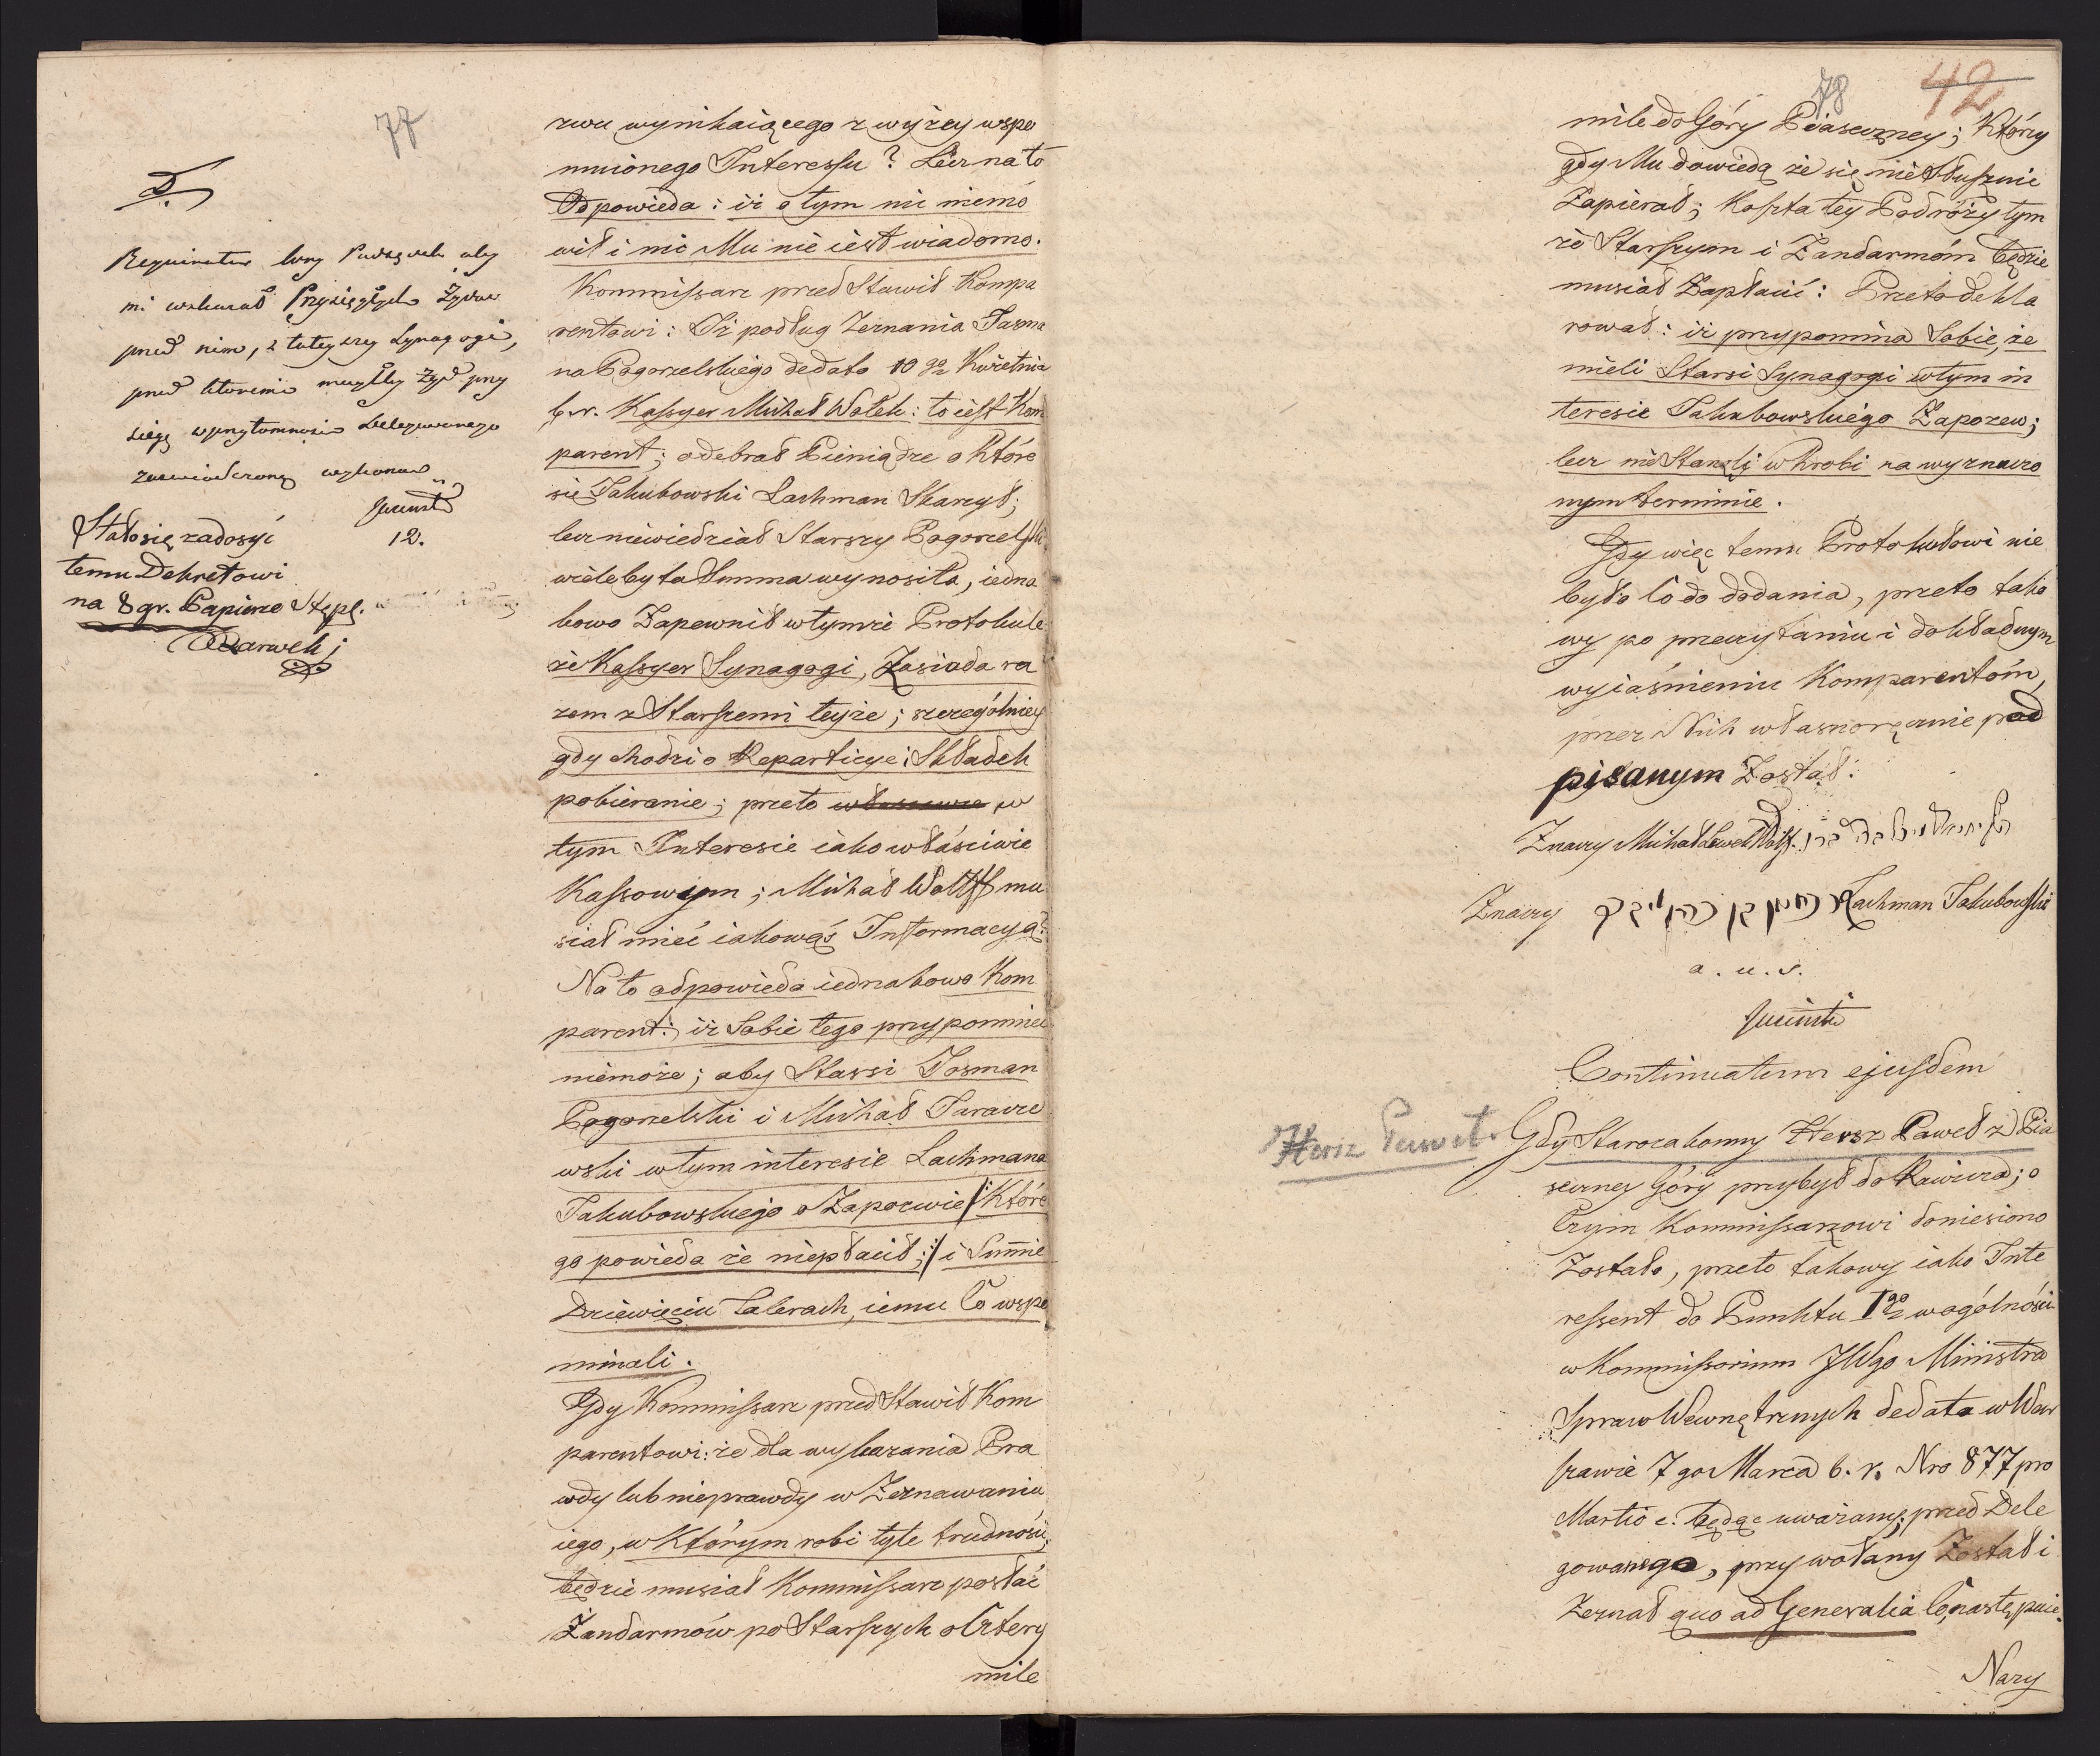 77
D.
Requiratur
mi wskazał Przysięgłych Żydów
przed nim, z tuteyszey Synagogi,
przed któremi mógłby Żyd przy
sięgę w przytomności Delegowanego
zaświadczoną wykonać
12.
Stało się zadosyć
temu Dekretowi
na 8 gr. Papierze Stępl.
zwu wynikaiącego z wyżey wspo
mnionego Interessu? Lecz na to
Odpowieda: iż o tym nic niemó
wił i nic Mu nie iest wiadomo.
Kommissarz przed Stawił Kompa
rentowi: Iż podług Zeznania Jasma
na Pogorzelskiego de dato 10 go Kwietnia
b. r. Kassyer Michał Wolek: to iest Kom
parent; odebrał Pieniądze o Które
się Jakubowski Lachman Skarzył;
lecz niewiedział Starszy Pogorzelski
wieleby ta Summa wynosiła, iedna
kowo Zapewnił w tymże Protokule
że Kassyer Synagogi, Zasiada ra
zem z Starszemi teyże; szczególniey
gdy chodzi o Reparticye i Składek
pobieranie; przeto w
tym Interesie iako właściwie
Kassowym; Michał Wolff mu
siał mieć iakowąś Informacyą?
Na to odpowieda iednakowo Kom
parent: iż Sobie tego przypomnieć
niemoże; aby Starsi Josman
Pogorzelski i Michał Saracze
wski w tym interesie Lachmana
Jakubowskiego o Zapozwie /: Które
go powieda że niepłacił; :/ i Summie
Dziewięciu Talerach, iemu Co wspo
minali.
Gdy Kommissarz przed Stawił Kom
parentowi: że dla wykazania Pra
wdy lub nieprawdy w Zeznawaniu
iego, w Którym robi tyle trudności;
będzie musiał Kommissarz posłać
Żandarmów po Starszych o Cztery
mile
78
42
mile do Góry Piaseczney; Którzy
gdy Mu dowiedą że się nie Słusznie
Zapierał; Koszta tey Podróży tym
że Starszym i Żandarmóm będzie
musiał Zapłacić: Przeto dekla
rował: iż przypomina Sobie, że
mieli Starsi Synagogi w tym in
teresie Jakubowskiego Zapozew;
lecz nie Stanęli w Krobi na wyznaczo
nym terminie.
Gdy więc temu Protokułowi nie
było Co do dodania, przeto tako
wy po przeczytaniu i dokładnym
wyiaśnieniu Komparentóm,
przez Nich własnoręcznie pod
pisanym Został:
Znaczy Michał Lewek Wolff.
Znaczy Lachman Jakubowski
a. u. s.
Continuatum ejusdem
Hersz Paweł
Gdy Starozakonny Hersz Paweł z Pia
seczney Góry przybył do Rawicza; o
Czym Kommissarzowi doniesiono
Zostało, przeto takowy iako Inte
ressent do Punktu 1go w ogólności
w Kommissorium JWgo Ministra
Spraw Wewnętrznych de dato w War
szawie 7 go Marca b. r. Nro 877 pro
Martio c. będąc uważany; przed Dele
gowanego, przywołany Został i
Zeznał quo ad Generalia Co następuie.
Nazy